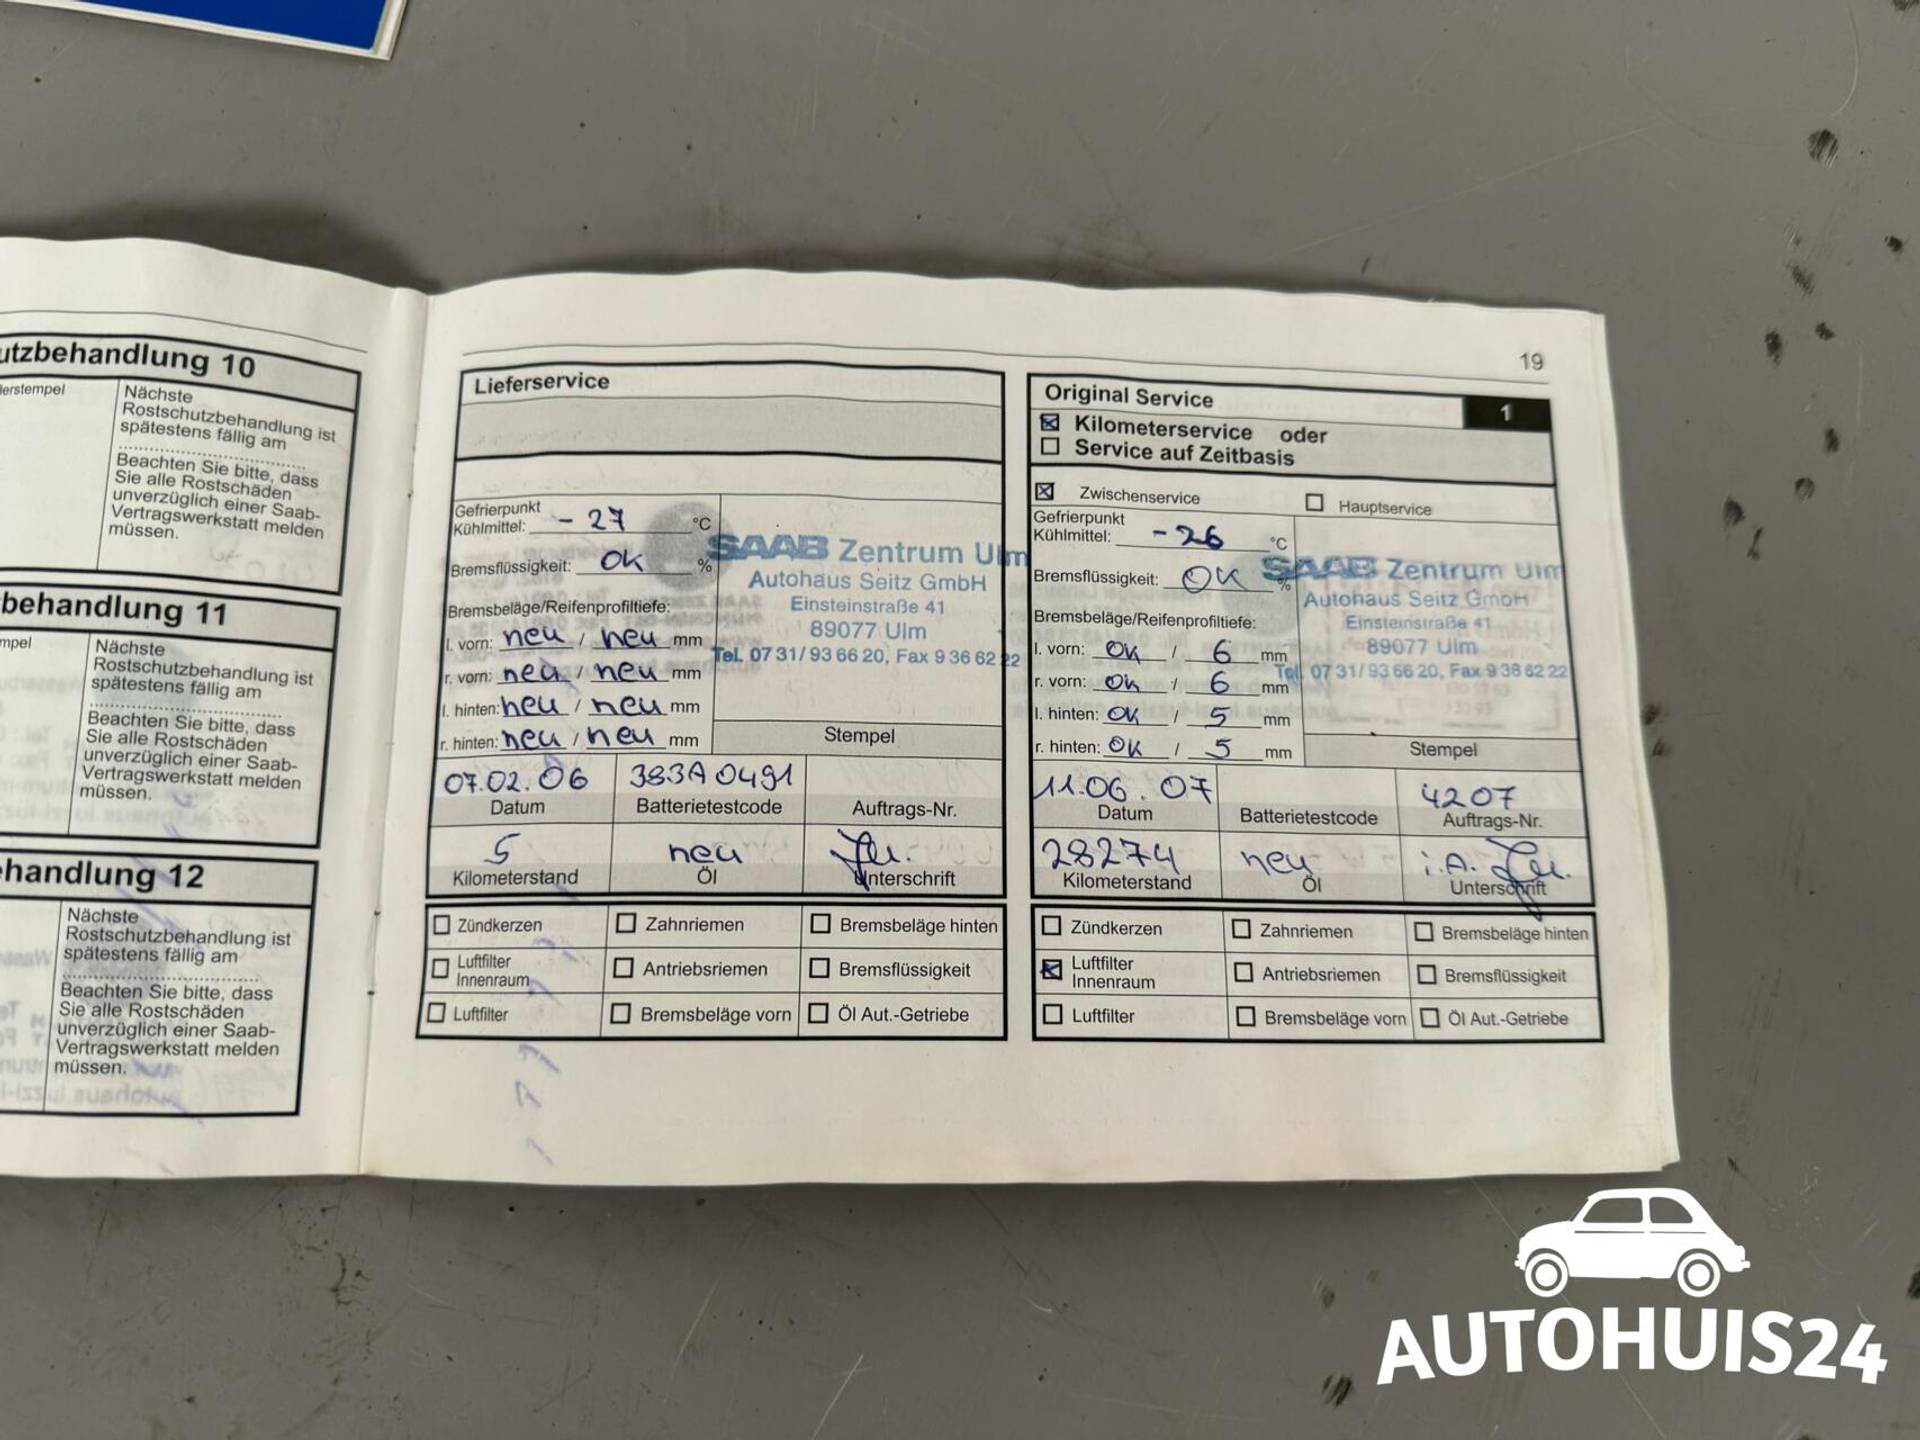 utzbehandlung 10
lerstempel
Nächste
Rostschutzbehandlung ist
spätestens fällig am
Beachten Sie bitte, dass
Sie alle Rostschäden
unverzüglich einer Saab-
Vertragswerkstatt melden
müssen.
behandlung 11
mpel
Nächste
Rostschutzbehandlung ist
spätestens fällig am
Beachten Sie bitte, dass
Sie alle Rostschäden
unverzüglich einer Saab-
Vertragswerkstatt melden
müssen.
ehandlung 12
Nächste
Rostschutzbehandlung ist
spätestens fällig am
Beachten Sie bitte, dass
Sie alle Rostschäden
unverzüglich einer Saab-
Vertragswerkstatt melden
müssen.
19
Lieferservice
Gefrierpunkt
Kühlmittel: - 27 °C
Bremsflüssigkeit: OK %
Bremsbeläge/Reifenprofiltiefe:
l. vorn: neu / neu mm
r. vorn: neu / neu mm
l. hinten: neu / neu mm
r. hinten: neu / neu mm
SAAB Zentrum Ulm
Autohaus Seitz GmbH
Einsteinstraße 41
89077 Ulm
Tel. 07 31/ 93 66 20, Fax 9 36 62 22
Stempel
07.02.06 383A0491
Datum Batterietestcode Auftrags-Nr.
5 neu
Kilometerstand Öl Unterschrift
Zündkerzen Zahnriemen Bremsbeläge hinten
Luftfilter
Innenraum Antriebsriemen Bremsflüssigkeit
Luftfilter Bremsbeläge vorn Öl Aut.-Getriebe
Original Service 1
Kilometerservice oder
Service auf Zeitbasis
Zwischenservice Hauptservice
Gefrierpunkt
Kühlmittel: - 26 °C
Bremsflüssigkeit: OK %
Bremsbeläge/Reifenprofiltiefe:
l. vorn: OK / 6 mm
r. vorn: OK / 6 mm
l. hinten: OK / 5 mm
r. hinten: OK / 5 mm
SAAB Zentrum Ulm
Autohaus Seitz GmbH
Einsteinstraße 41
89077 Ulm
Tel. 07 31/ 93 66 20, Fax 9 36 62 22
Stempel
11.06.07 4207
Datum Batterietestcode Auftrags-Nr.
28274 neu i.A.
Kilometerstand Öl Unterschrift
Zündkerzen Zahnriemen Bremsbeläge hinten
Luftfilter
Innenraum Antriebsriemen Bremsflüssigkeit
Luftfilter Bremsbeläge vorn Öl Aut.-Getriebe
AUTOHUIS24